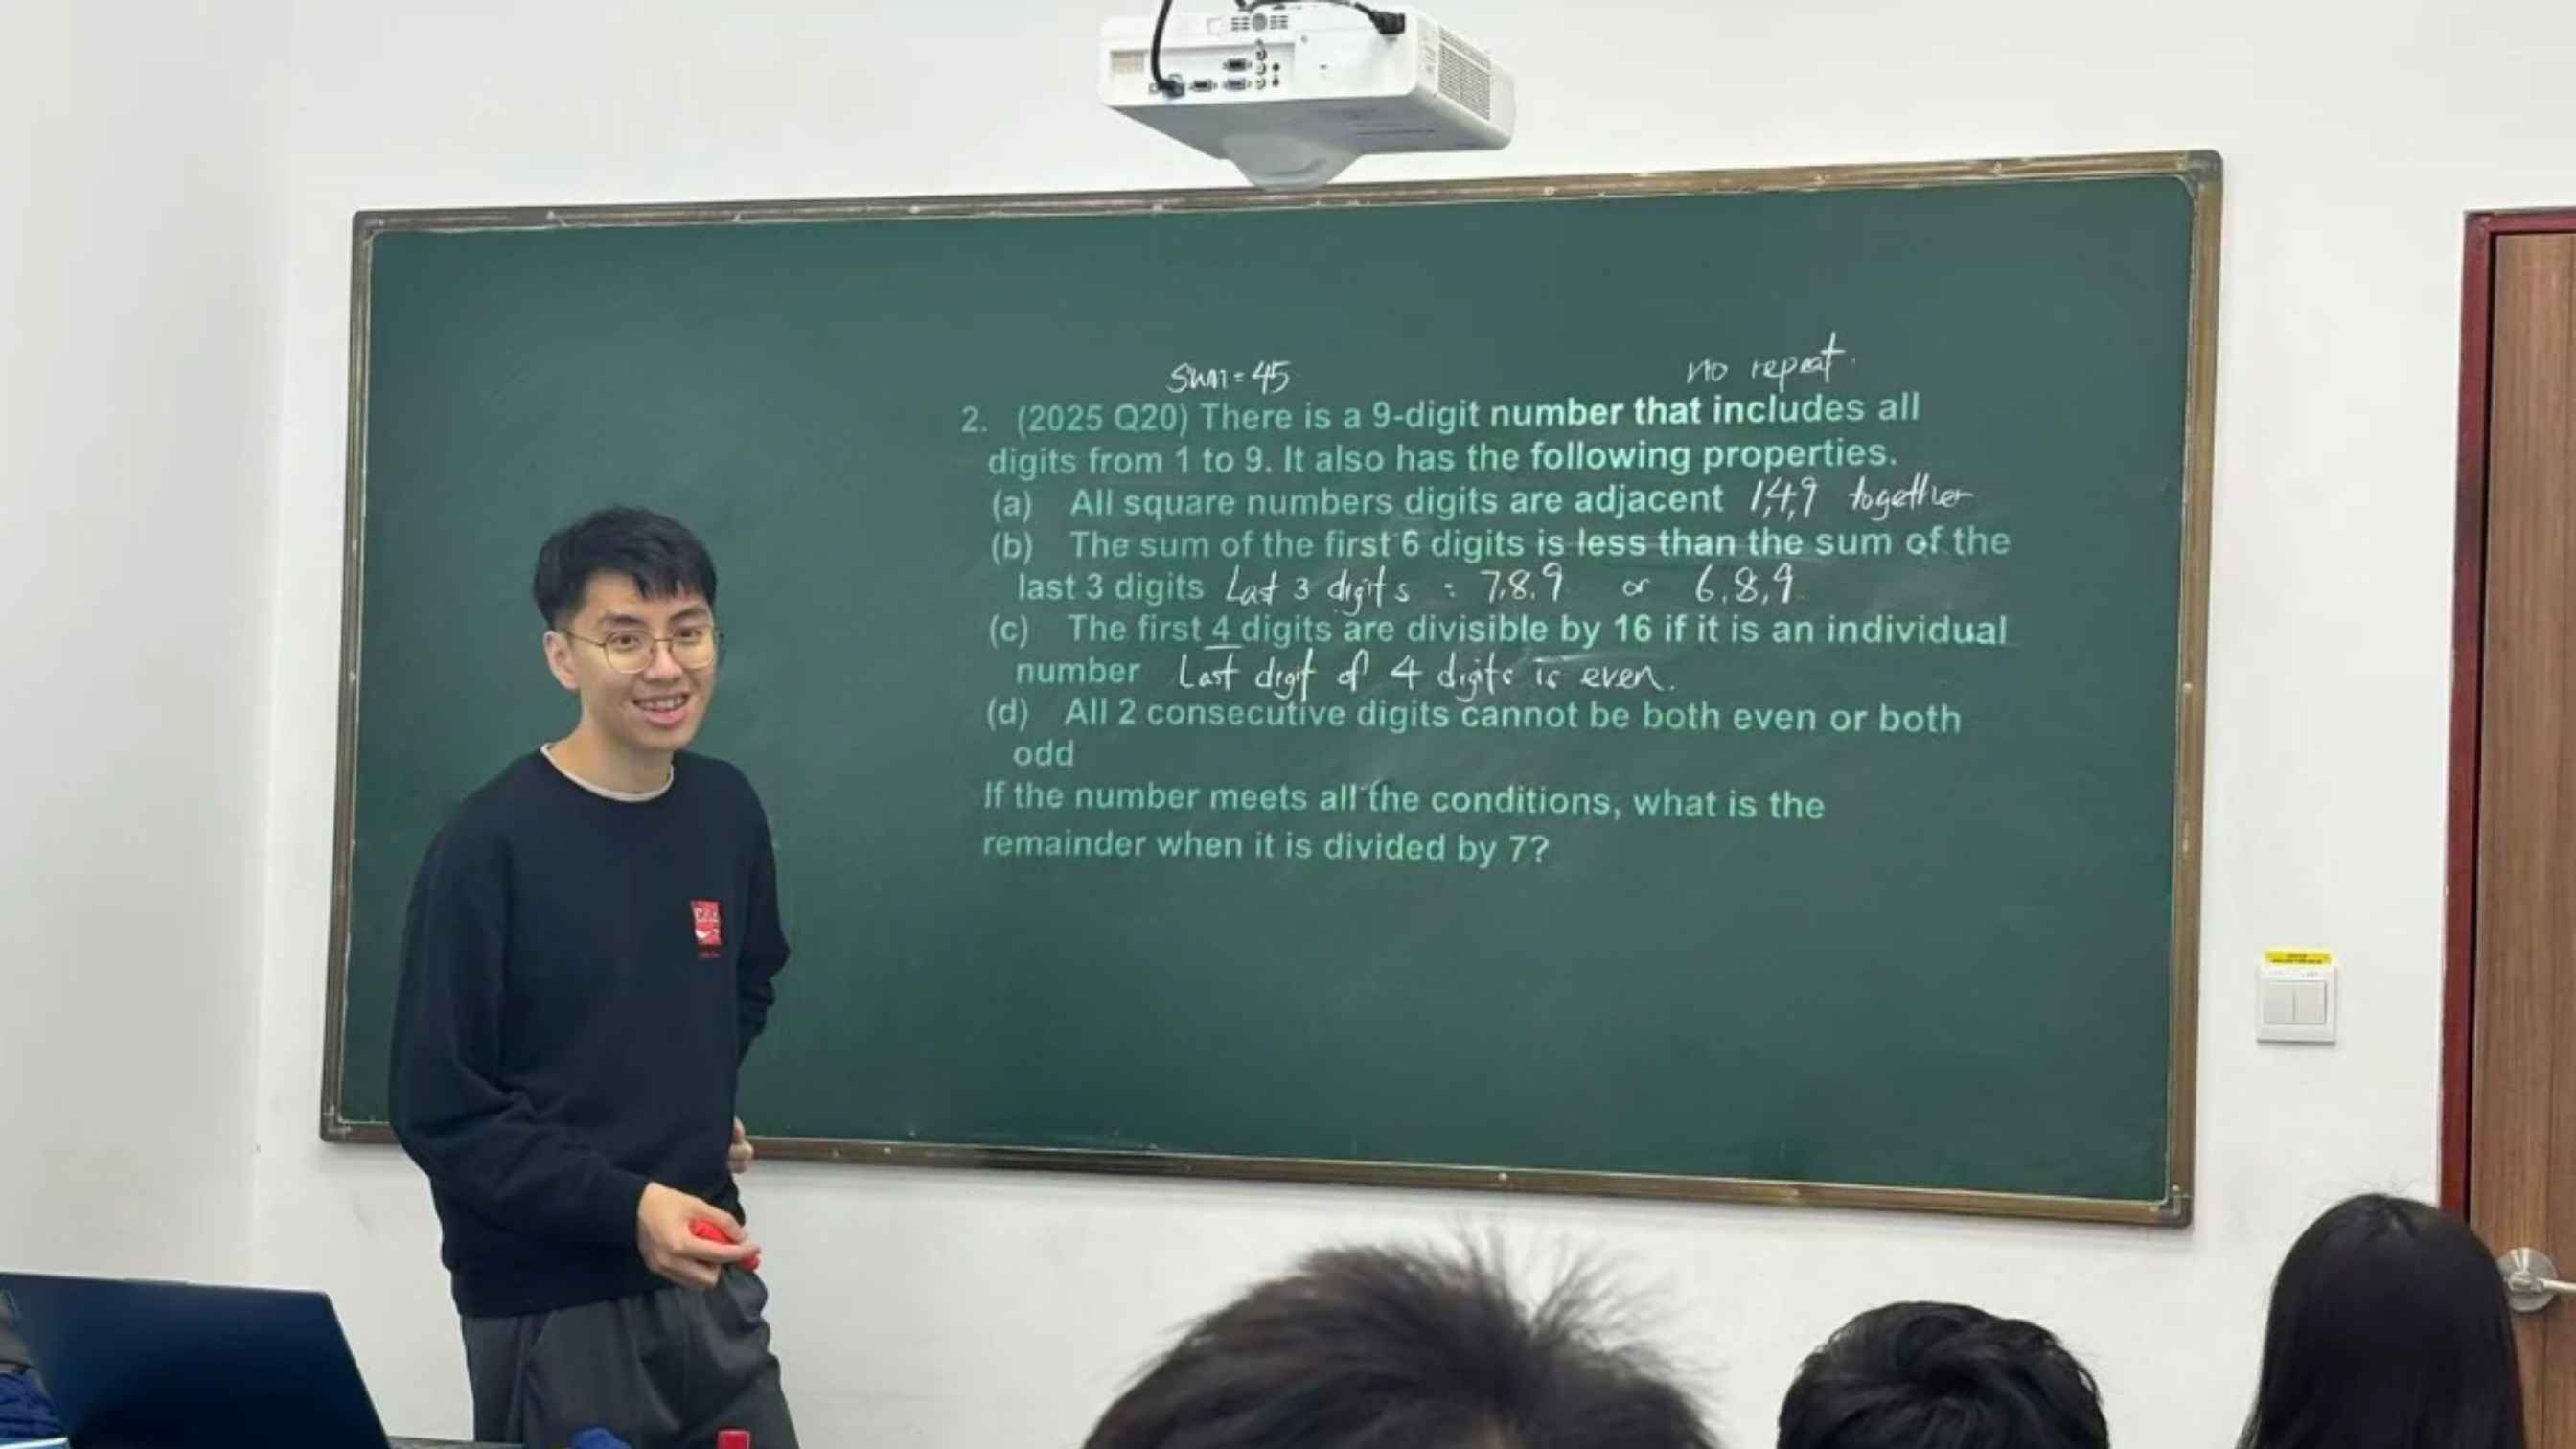 Sum = 45
no repeat.
2. (2025 Q20) There is a 9-digit number that includes all
digits from 1 to 9. It also has the following properties.
(a) All square numbers digits are adjacent 1,4,9 together
(b) The sum of the first 6 digits is less than the sum of the
last 3 digits Last 3 digits : 7,8,9 or 6,8,9
(c) The first 4 digits are divisible by 16 if it is an individual
number Last digit of 4 digits is even.
(d) All 2 consecutive digits cannot be both even or both
odd
If the number meets all the conditions, what is the
remainder when it is divided by 7?